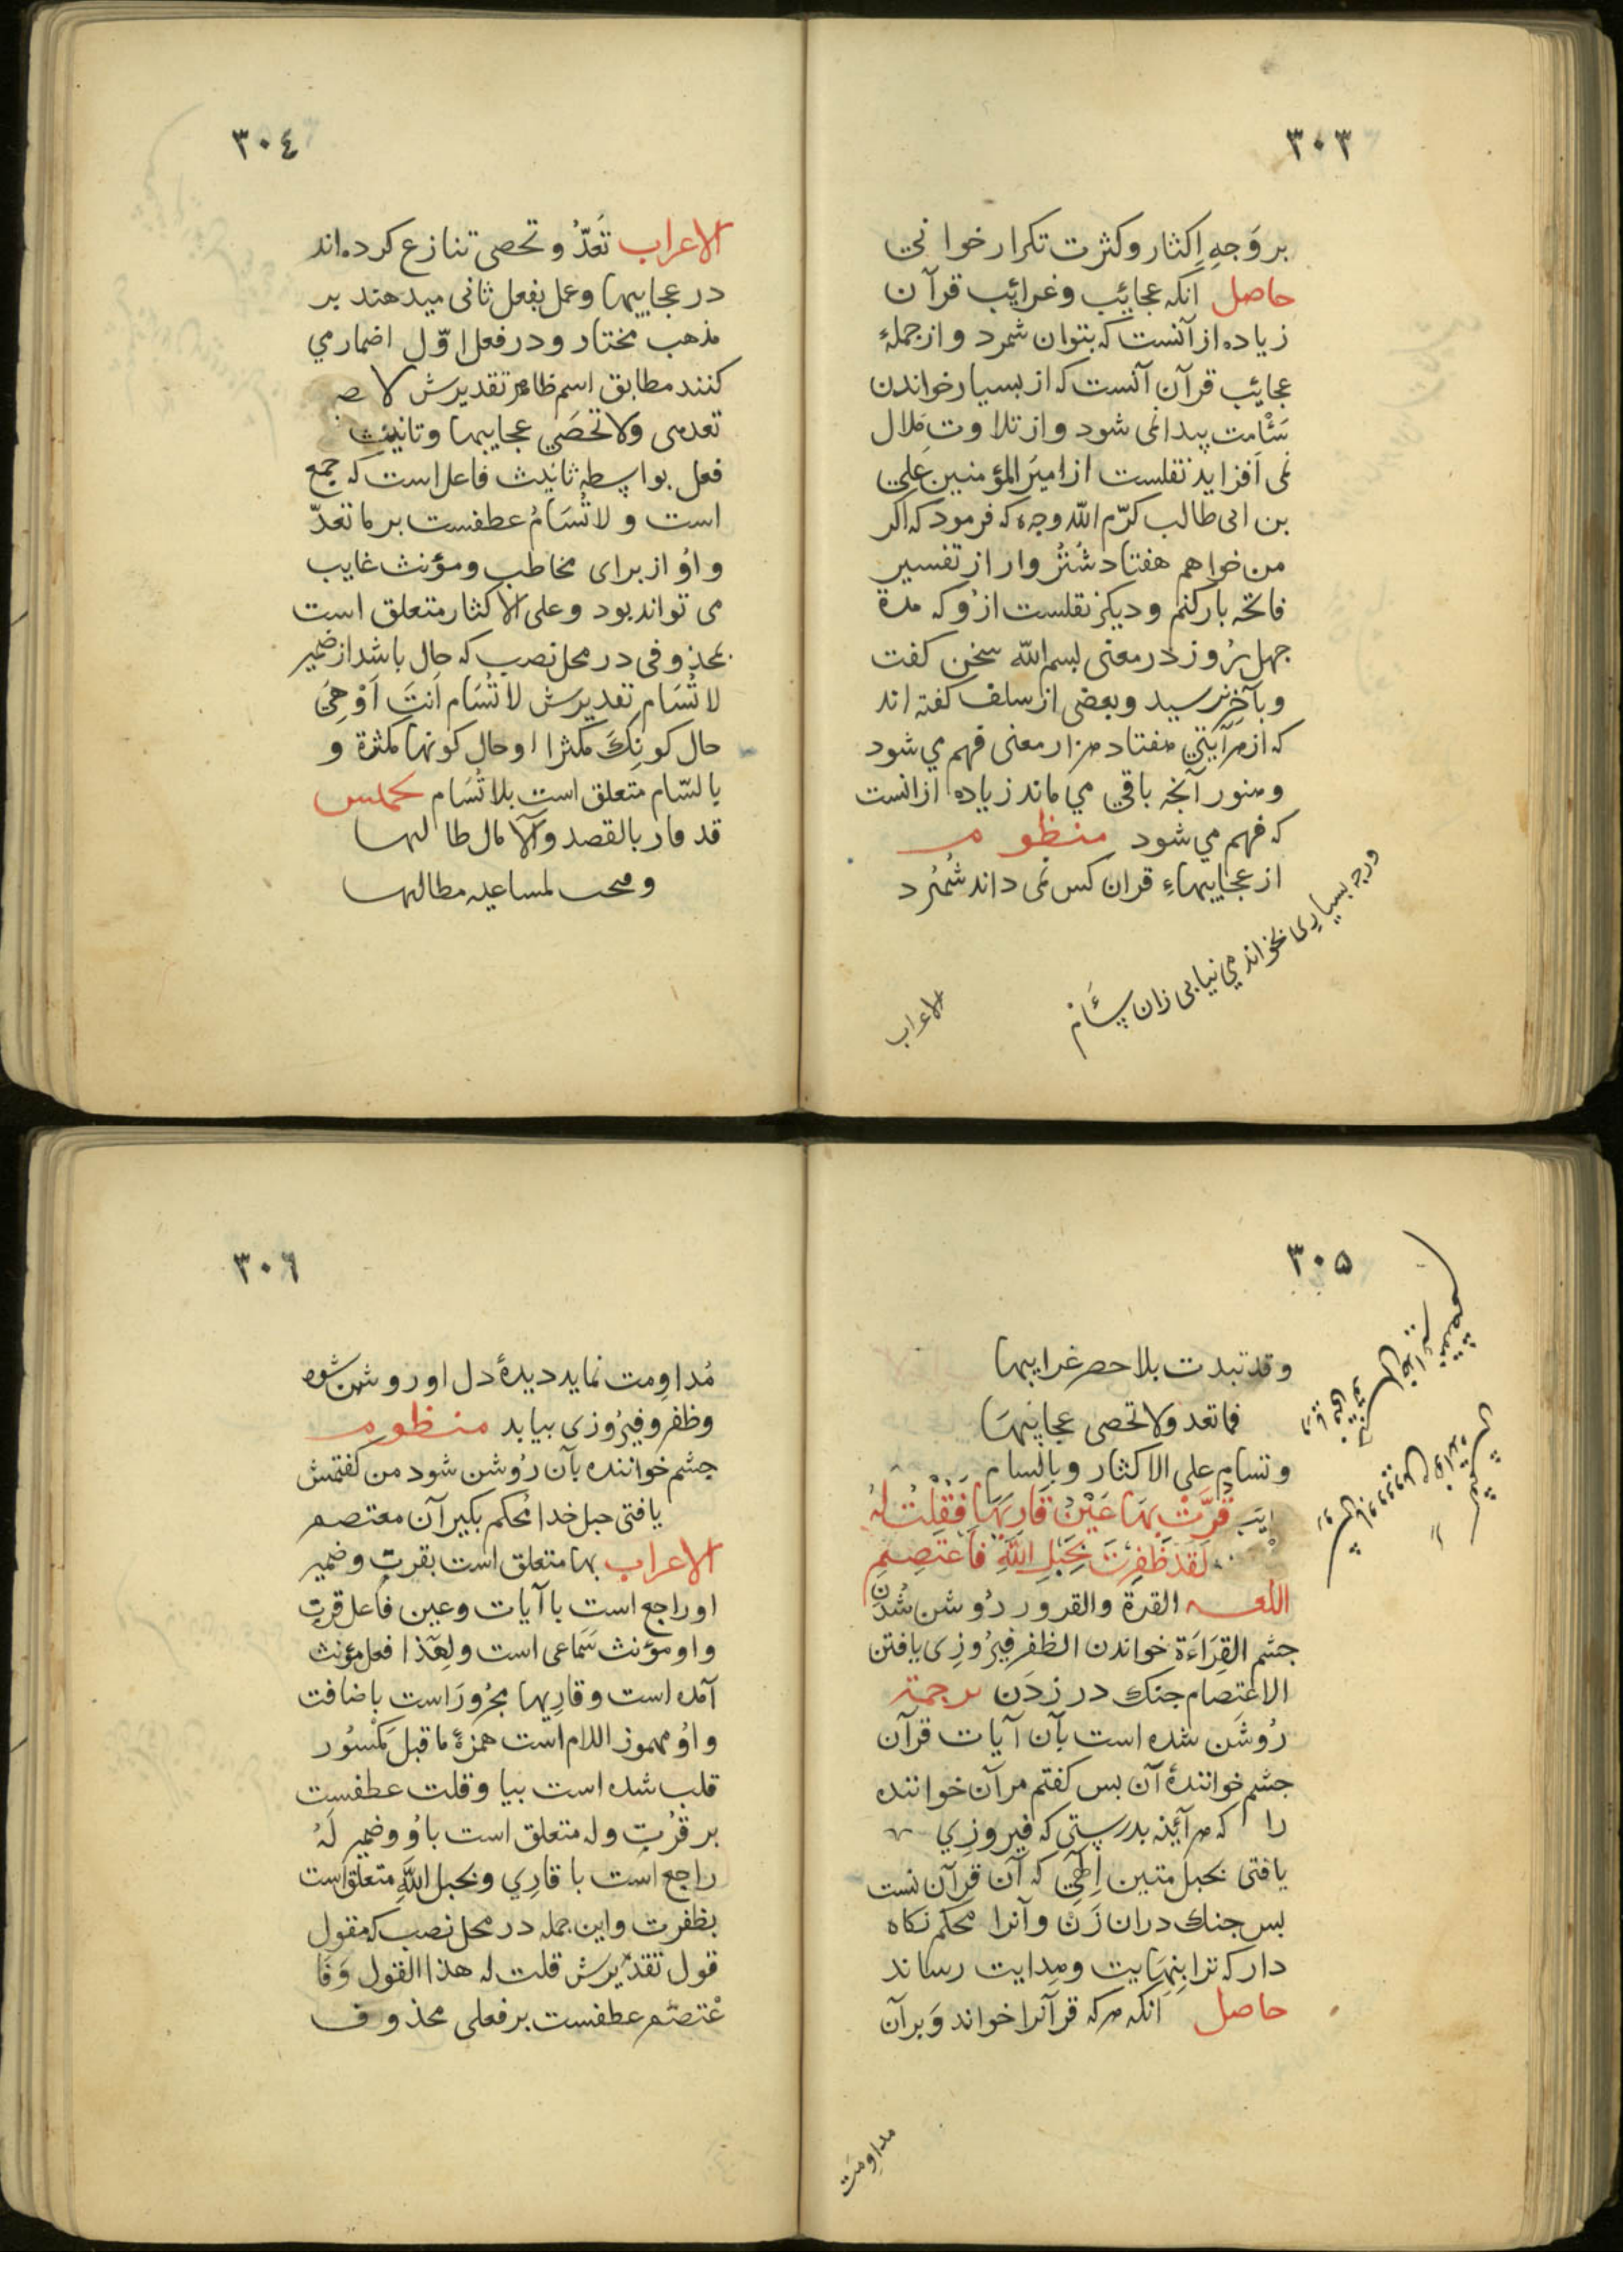 ٣٠٣
بر وَجهِ اِکثار و کثرت تکرار خوانی
حاصل انکه عجایٔب و غرایٔب قرآن
زیاده از آنست که بتوان شمرد و از جملهٔ
عجایٔب قرآن آنست که از بسیار خواندن
سَئْامت پیدا نمی شود و از تلاوت مَلال
نمی اَفزاید نقلست از امیرَ المؤمنین عَلِي
بن ابی طالب کرّم اللّه وجهه که فرمود که اکر
من خواهم هفتاد شُتُر وار از تفسیر
فاتحه بار کنم و دیکر نقلست ازُو که مدة
جهل رُوز در معنی بسم اللّه سخن کفت
و بآخِر نرسید و بعضی از سلف کفته اند
که از هر آیتي هفتاد هزار معنی فهم مي شود
و هنوز آنجه باقي مي ماند زیاده از انست
که فهم مي شود منظوم
از عجاییبهاءِ قران کس نمی داند شُمُرد
ورجه بسیارِی بخواند مي نیابی زان سَئَام
الاعراب
٣٠٤
الاعراب تَعَدُّ و تحصی تنازع کرده اند
در عجاییبها و عمل بفعل ثانی میدهند بر
مذهب مختار و در فعل اوّل اضمار مي
کنند مطابق اسم ظاهر تقدیرش لا
تعدهی وَلا تحصَي عجاییبها و تانیث
فعل بواسطه ثانیث فاعل است که جمع
است و لا تُسَامُ عطفست بر ما تعدّ
و اوُ از برای مخاطب و مؤنث غایب
می تواند بود و علی الاکثار متعلق است
بمحذوفی در محل نصب که حال باشد از ضمیر
لا تُسَام تقدیرش لا تُسَام اَنتَ اَوْ هِيَ
حال کونِکَ مکثرا او حال کونها مکثرة و
بالسّام متعلق است بلا تُسَام مخمس
قد فاز بالقصد والآمال طالبها
مطالبها
٣٠٥
وقد تبدت بلا حصر غرایبها
فما تعد ولا تحصی عجایٔبهَا
و تسام علی الاکثار و بالسام
قَرَّتْ بِهَا عَيْنُ قَارِيهَا فَقُلْتُ لَهُ
لَقَدْ ظَفِرْتَ بِحَبْلِ اللّهِ فَاعْتَصِمِ
اللغه القرة والقرور رُوشن شُدن
جشم القِرَاءَة خواندن الظفر فیرُوزِی یافتن
الاعْتِصام جنك در زدَن ترجمة
رُوشَن شده است بآن آیات قرآن
جشم خوانندهٔ آن بس کفتم مر آن خواننده
را که هر آیٔنه بدرستي که فیروزي
یافتی بحبل متین اِلٰهِي که آن قرآن نست
بس جنك دران زَن و آنرا محکم نکاه
دار که ترا بِنِهَایت و هِدایت رساند
حاصل انکه هر که قرآنرا خواند وَ بر آن
مداوِمَت
٣٠٦
مُداوِمت نماید دیدهٔ دل او روشن شود
و ظفر و فیرُوزی بیابد منظوم
جشم خواننده بآن رُوشن شود من کفتمش
یافتی حبل خدا مُحکم بکیر آن معتصم
الاعراب بها متعلق است بقرت و ضمیر
او راجع است با آیات و عین فاعل قرت
و او مؤنث سَمَاعی است و لِهٰذا فعل مؤنث
آمده است و قارِیها مجرُورَ است باضافت
و اوُ مهموز اللام است همزهٔ ما قبل مَکسُور
قلب شده است بیا و قلت عطفست
بر قرُت و له متعلق است باوُ و ضمیر لَهُ
راجع است با قارِي و بحبل اللّهِ متعلق است
بظفرت و این جمله در محل نصب که مقول
قول تقدیرش قلت له هذا القول وَ فَا
عْتصَم عطفست بر فعلی محذوف